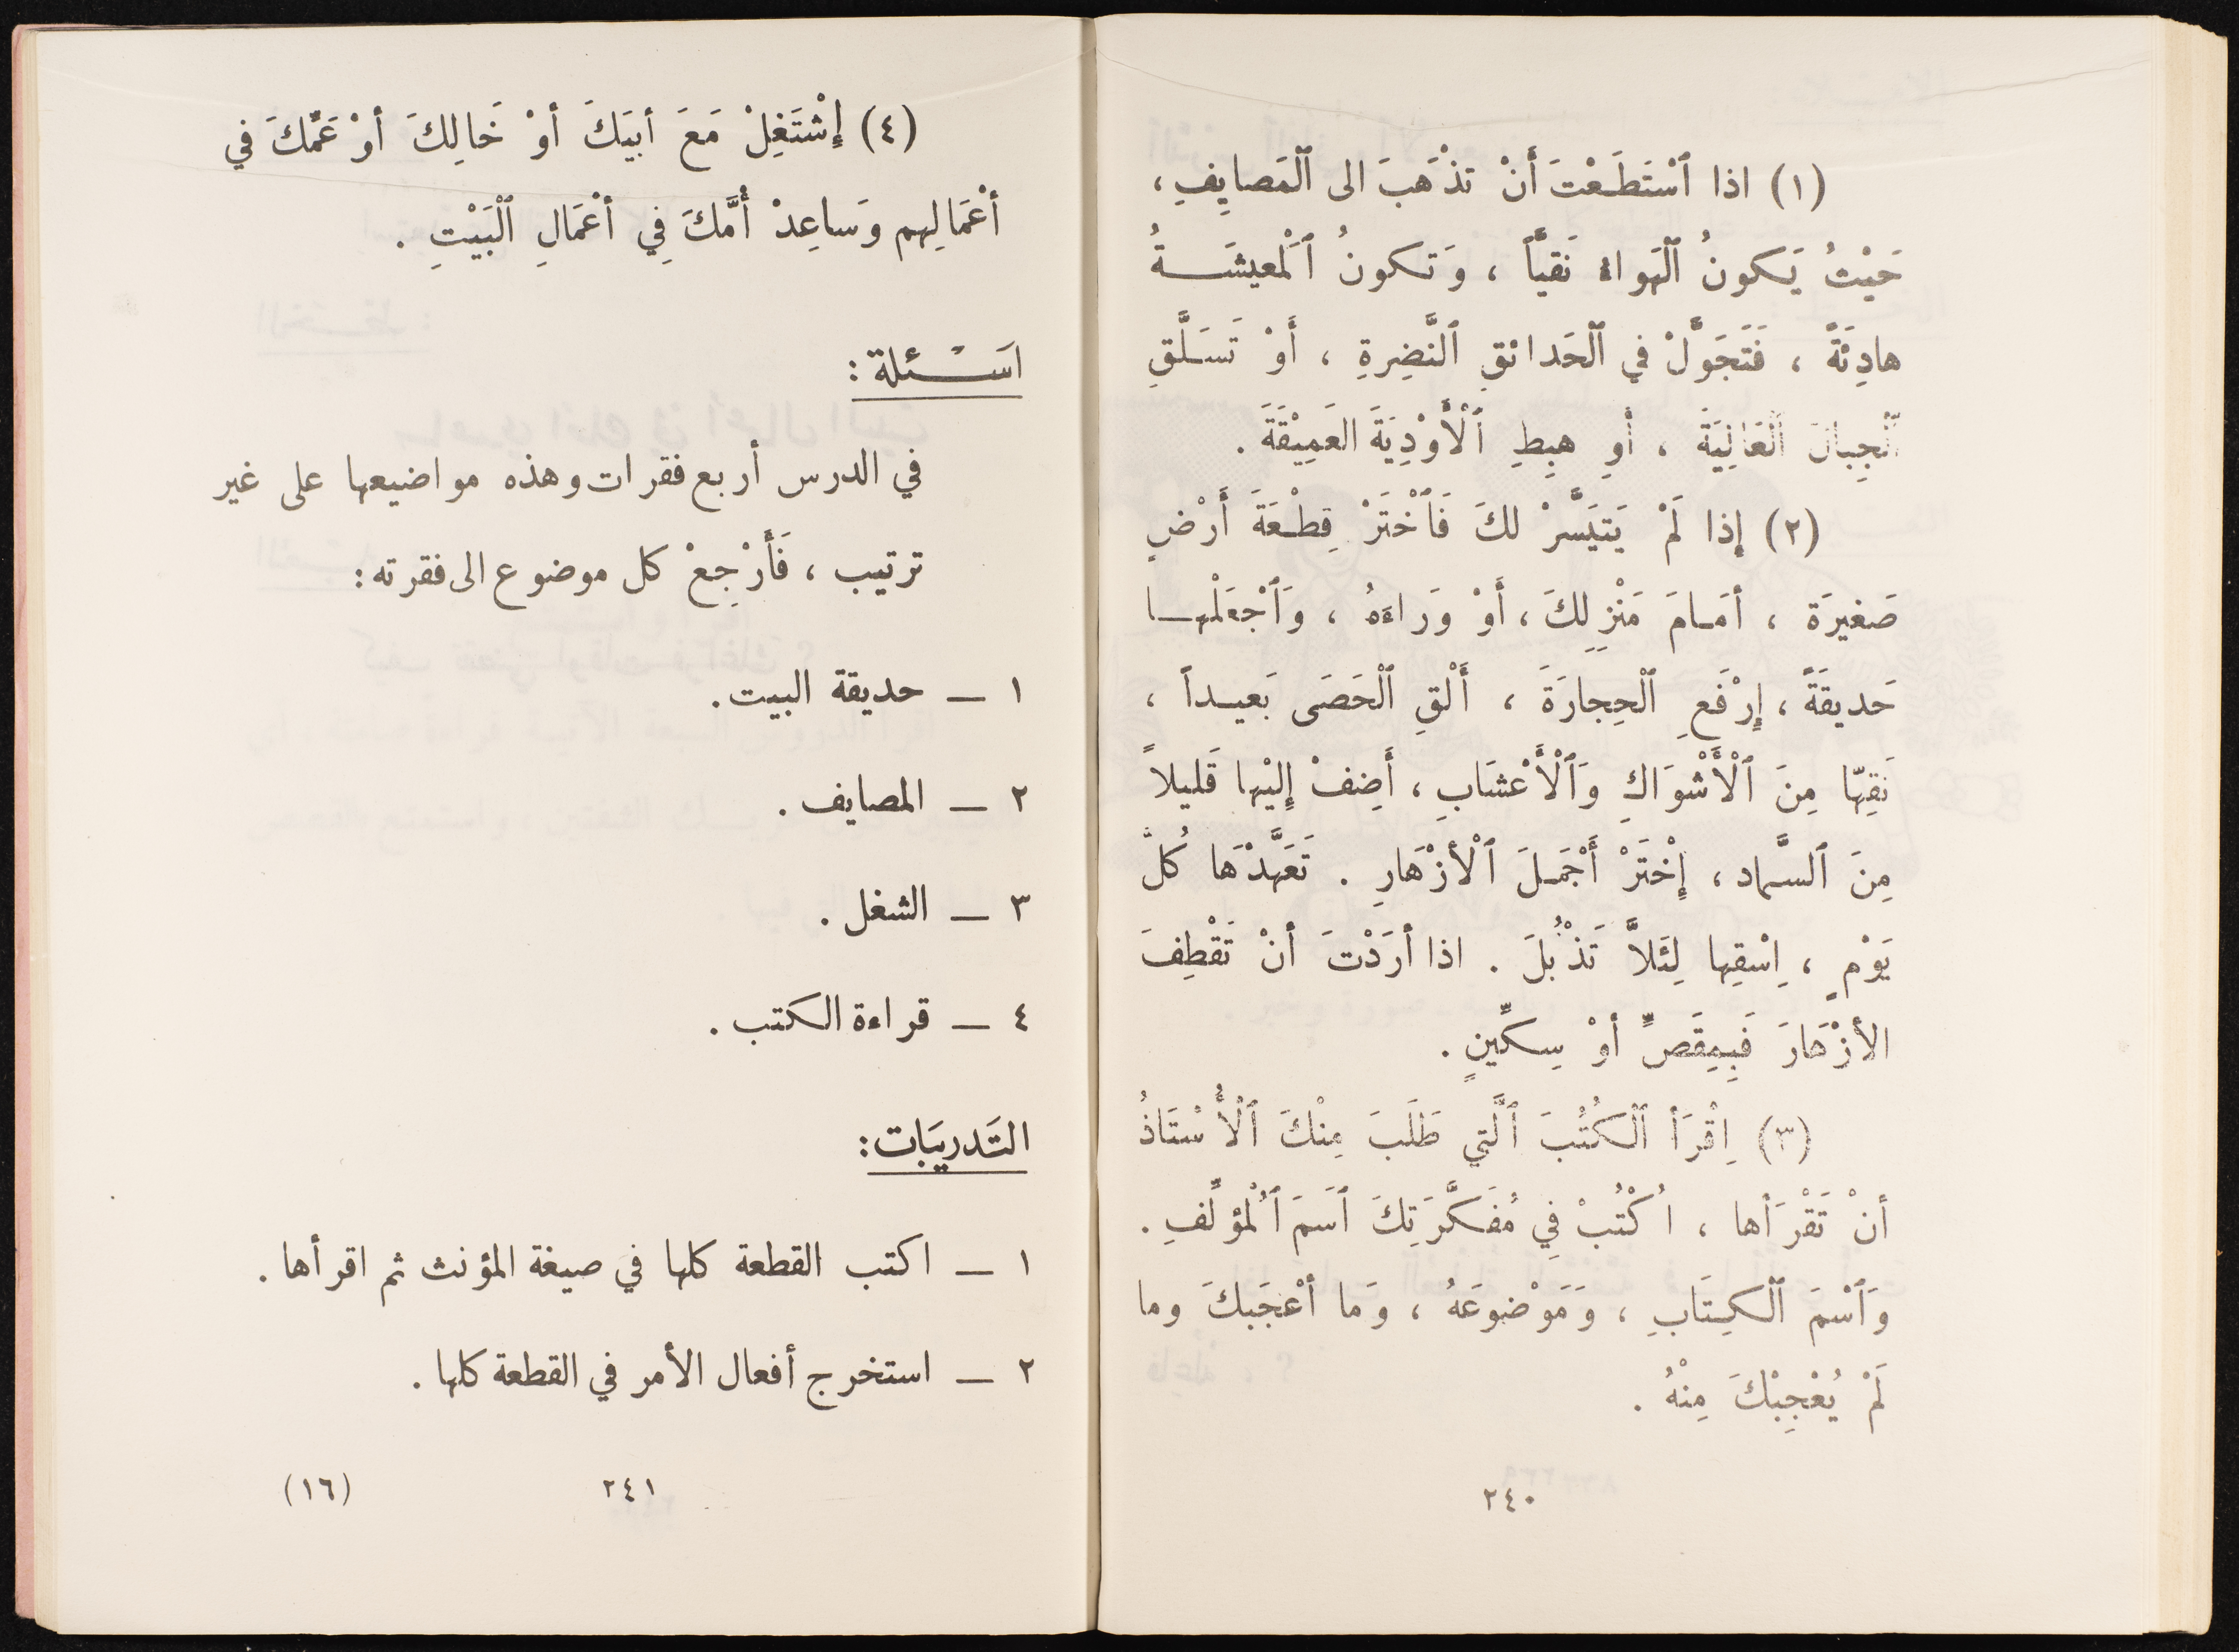 (١) اذا ٱسْتَطَعْتَ أَنْ تذْهَبَ الى ٱلْمَصايِفِ ،
حَيْثُ يَكونُ ٱلْهَواءُ نَقيّاً ، وَتكونُ ٱلْمَعيشَةُ
هادِئَةً ، فَتَجَوَّلْ في ٱلْحَدائقِ ٱلنَّضِرةِ ، أَوْ تَسَلَّقِ
ٱلْجِبالَ ٱلْعَالِيَةَ ، أَوِ هبِطِ ٱلْأَوْدِيَةَ العَمِيْقَةَ .
(٢) إِذا لَمْ يَتيَسَّرْ لكَ فَٱخْتَرْ قِطْعَةَ أَرْضٍ
صَغيرَة ، أمَامَ مَنْزِلِكَ ، أَوْ وَراءَهُ ، وَٱجْعَلْها
حَديقَةً ، إِرْفَعِ ٱلْحِجارَةَ ، أَلْقِ ٱلْحَصَى بَعيداً ،
نَقِّها مِنَ ٱلْأَشْوَاكِ وَٱلْأَعْشَابِ ، أَضِفْ إِلَيْها قَليلاً
مِنَ ٱلسَّماد ، إِخْتَرْ أَجْمَلَ ٱلْأَزْهَارِ . تَعَهَّدْهَا كُلَّ
يَوْمٍ ، اِسْقِها لِئَلاَّ تَذْبُلَ . اذا أَرَدْتَ أنْ تَقْطِفَ
الأزْهَارَ فَبِمِقَصٍّ أوْ سِكِّينٍ .
(٣) اِقْرَأ ٱلْكُتُبَ ٱلَّتي طَلَبَ مِنْكَ ٱلْأُسْتَاذُ
أنْ تَقْرَأها ، اُكْتُبْ فِي مُفَكَّرَتِكَ ٱسَمَ ٱلْمُؤلِّفِ .
وَٱسْمَ ٱلْكِتَابِ ، وَمَوْضوعَهُ ، وَما أعْجَبكَ وما
لَمْ يُعْجِبْكَ مِنْهُ .
٢٤٠
(٤) إِشْتَغِلْ مَعَ أبيَكَ أوْ خَالِكَ أوْ عَمِّكَ في
أعْمَالِهم وَساعِدْ أُمَّكَ فِي أعْمَالِ ٱلْبَيْتِ .
اسْئلة :
في الدرس أربع فقرات وهذه مواضيعها على غير
ترتيب ، فَأَرْجِعْ كل موضوع الى فقرته :
١ – حديقة البيت .
٢ – المصايف .
٣ – الشغل .
٤ – قراءة الكتب .
التَدريَبات :
١ – اكتب القطعة كلها في صيغة المؤنث ثم اقرأها .
٢ – استخرج أفعال الأمر في القطعة كلها .
٢٤١
(١٦)